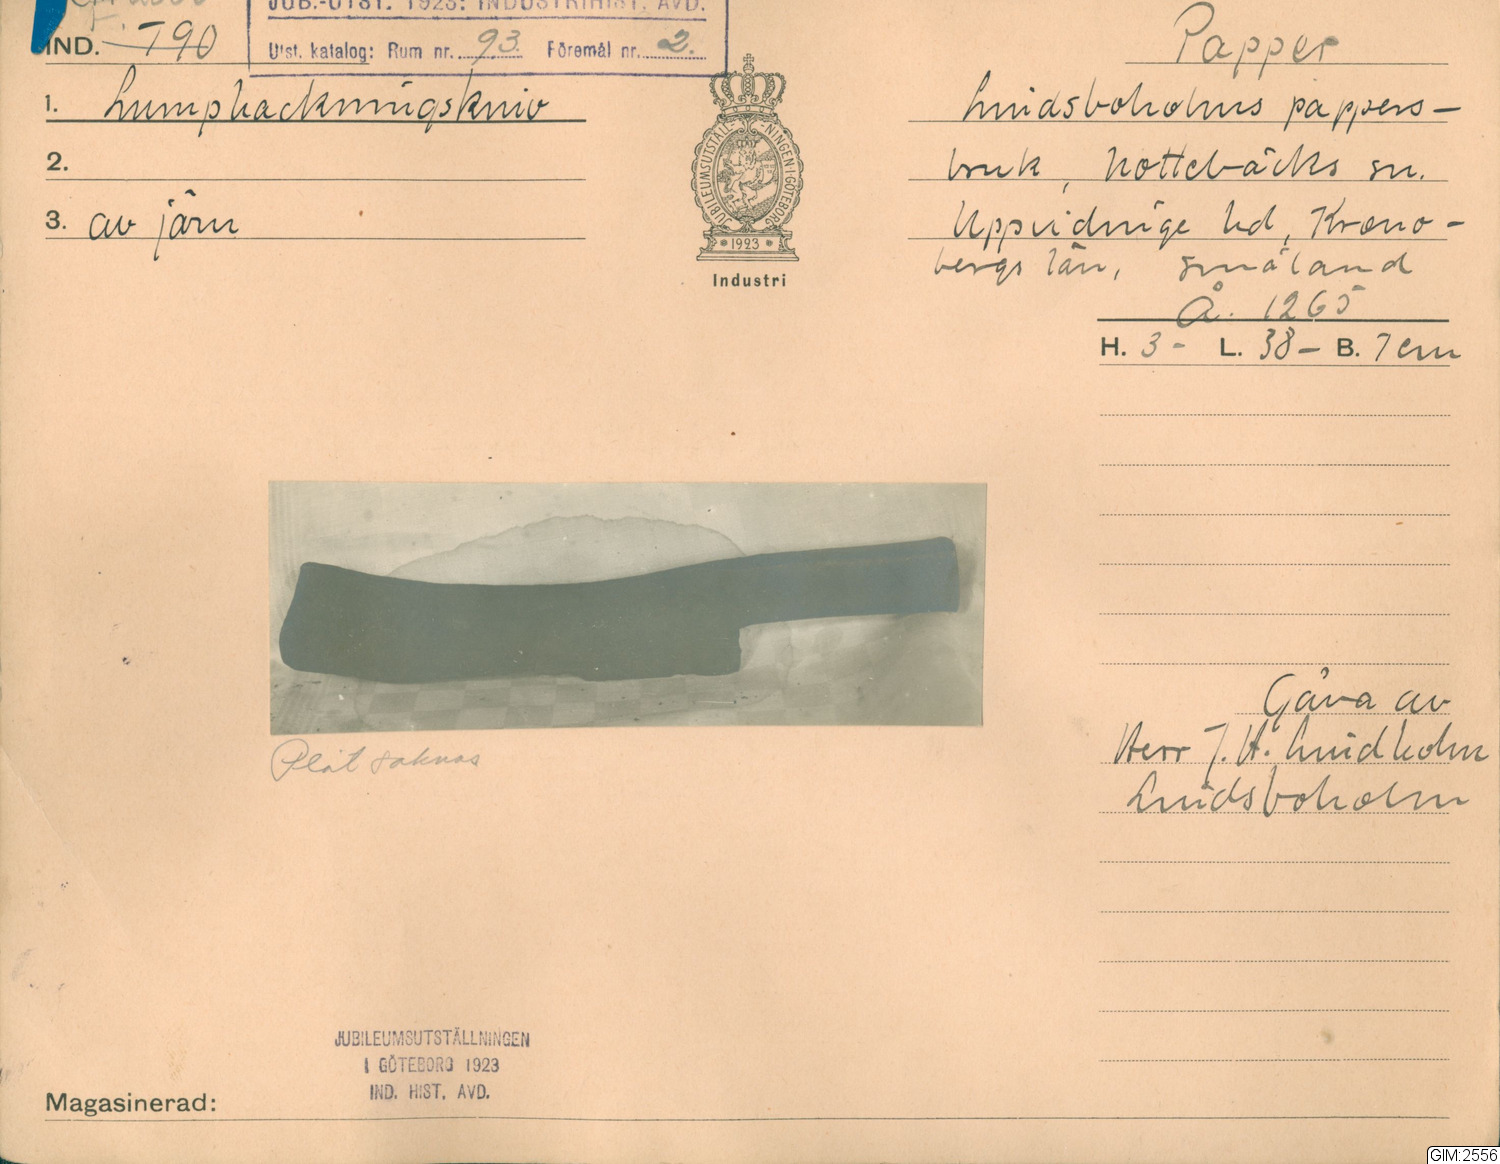 JUB.-UTST. 1923: INDUSTRIHIST. AVD.
IND. 790
Utst. katalog: Rum nr. 93. Föremål nr. 2.
Papper
1. Lumphackningskniv
2.
3. av järn
Lindsboholms pappers-
bruk, Nottebäcks sn.
Uppvidinge hd, Krono-
bergs län, Småland
Å. 1265
H. 3 - L. 38 - B. 7 cm
JUBILEUMSUTSTÄLLNINGEN I GÖTEBORG
1923
Industri
Plåt saknas
Gåva av
Herr J. H. Lindholm
Lindsboholm
JUBILEUMSUTSTÄLLNINGEN
I GÖTEBORG 1923
IND. HIST. AVD.
Magasinerad:
GIM:2556